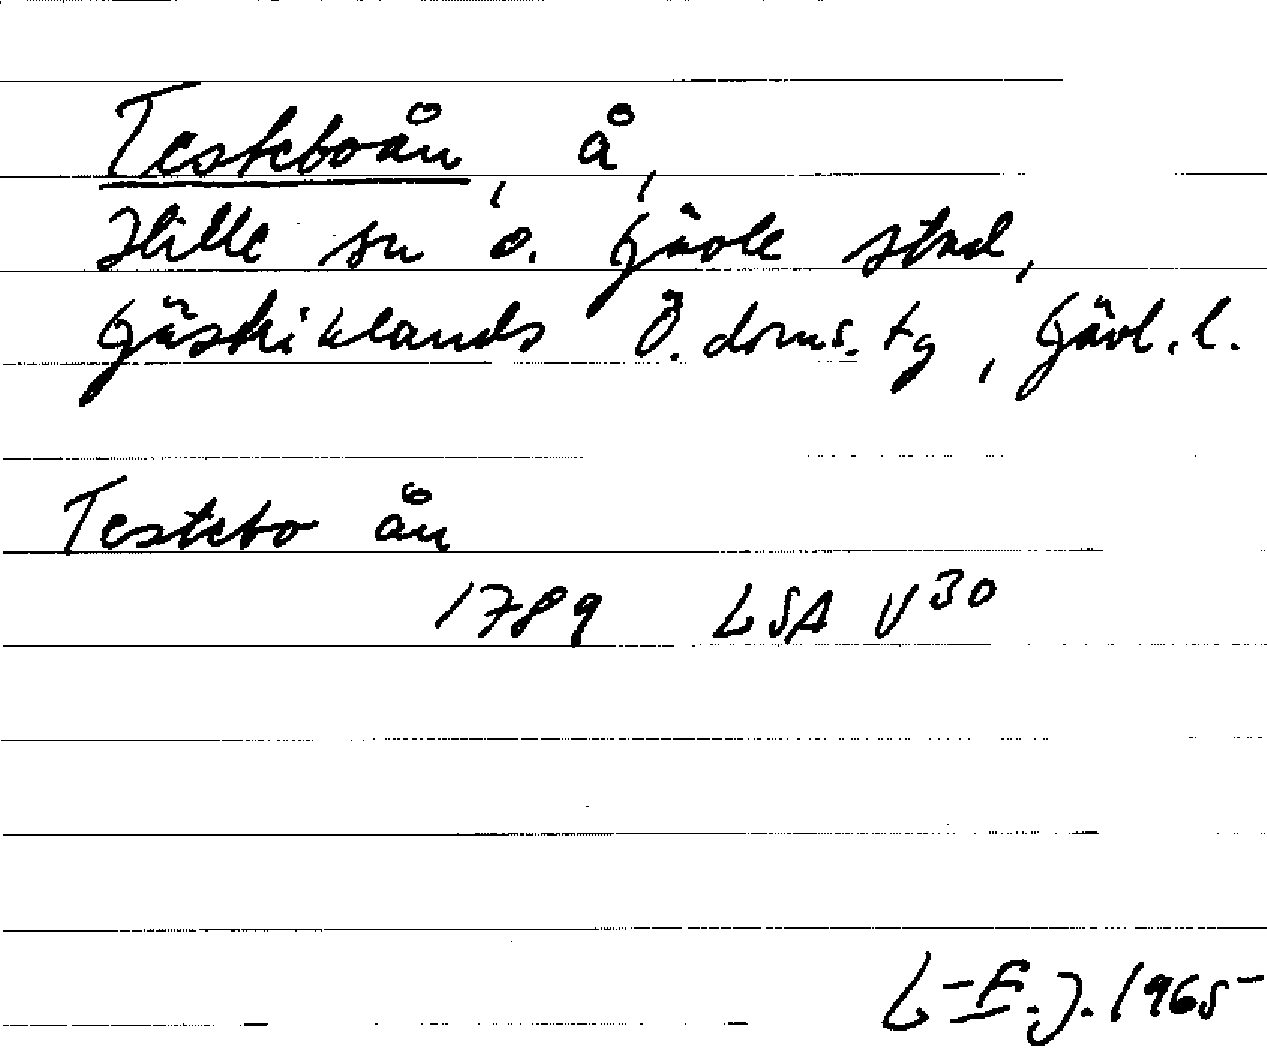 Testeboån, å,
Hille sn o. Gävle stad,
Gästriklands Ö. doms. tg, Gävl. l.
Testebo ån
1789 LSA V30
L-E.J. 1965